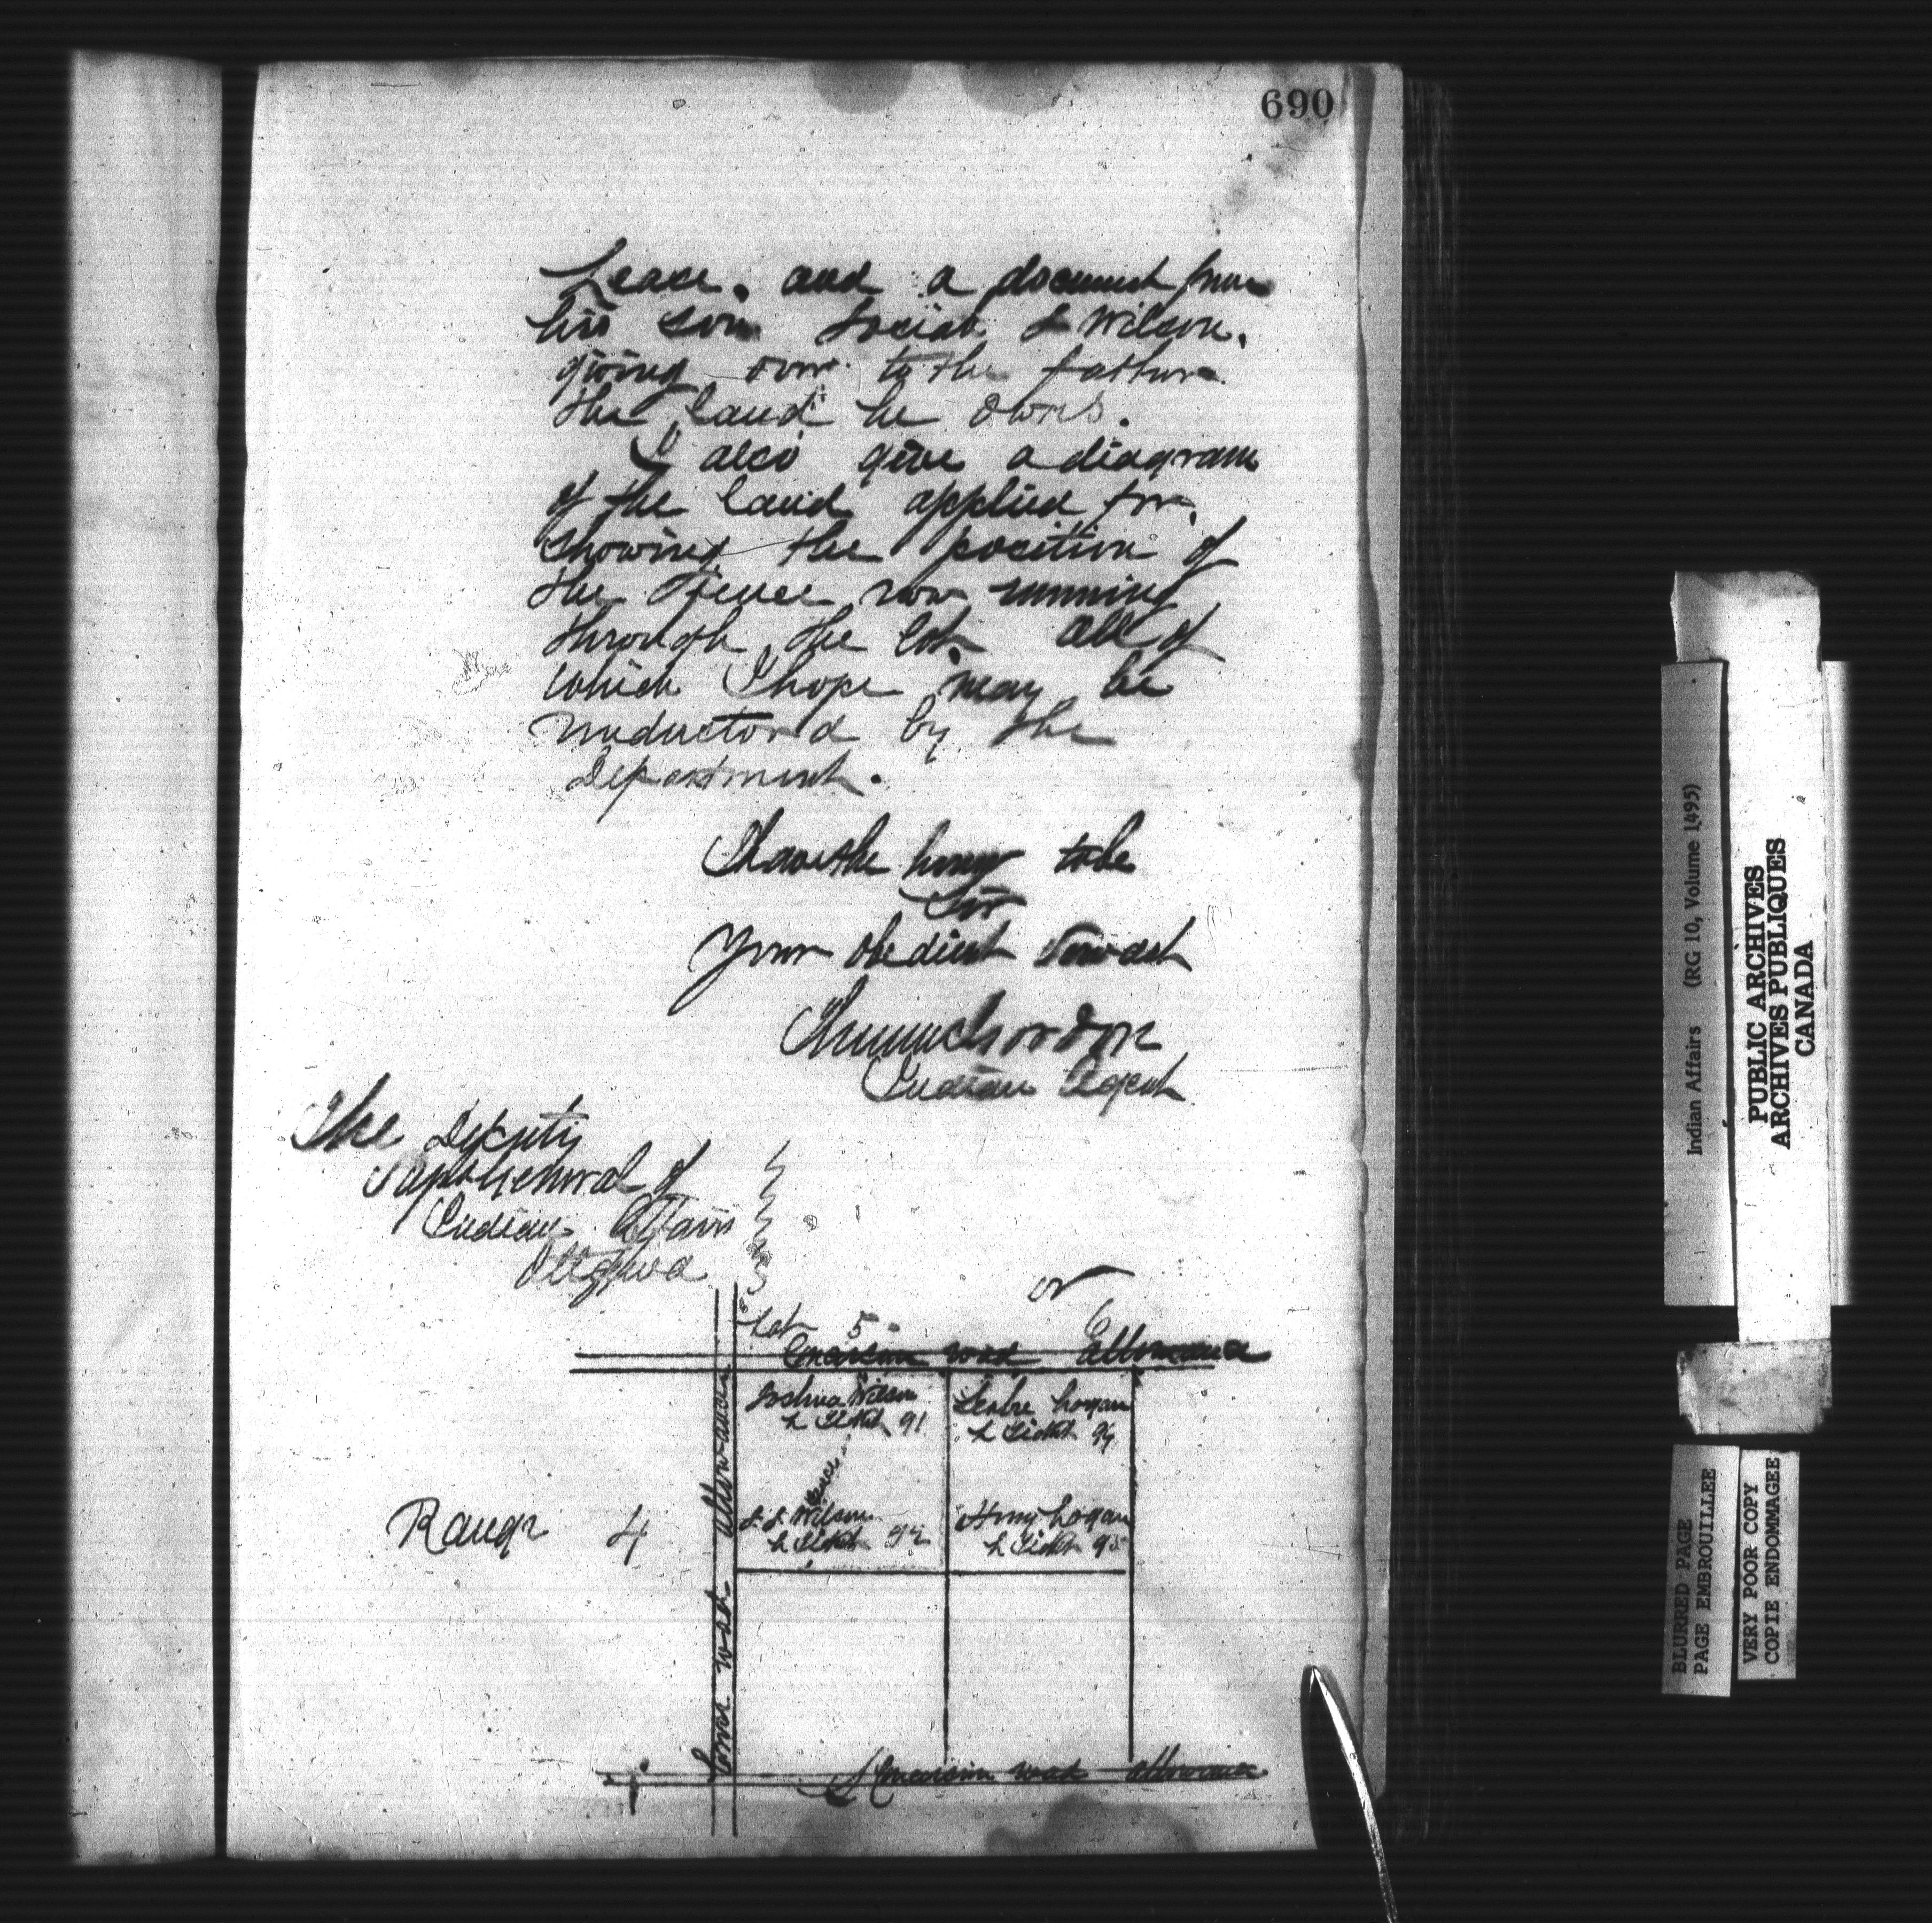 690
Lease. and a document from
his son Josiah L Wilson.
giving over to the father
the land he owns.
I also give a diagram
of the land applied for.
showing the position of
the Fence now running
through the lot. All of
which I hope may be
understood by the
Department.
I have the honor to be
Sir
Your obedient Servant
Gordon
Indian Agent
The Deputy
Supt General of
Indian Affairs
Ottawa
or
Lot 5 6
Concession road Allowance
Joshua Wilson
L Ticket 91
Logan
L Ticket 94
Fence
J. L Wilson
L Ticket 92
Henry Logan
L Ticket 95
Range 4
road Allowance
Concession road allowance
Indian Affairs (RG 10, Volume 1495)
PUBLIC ARCHIVES
ARCHIVES PUBLIQUES
CANADA
BLURRED PAGE
PAGE EMBROUILLEE
VERY POOR COPY
COPIE ENDOMMAGEE